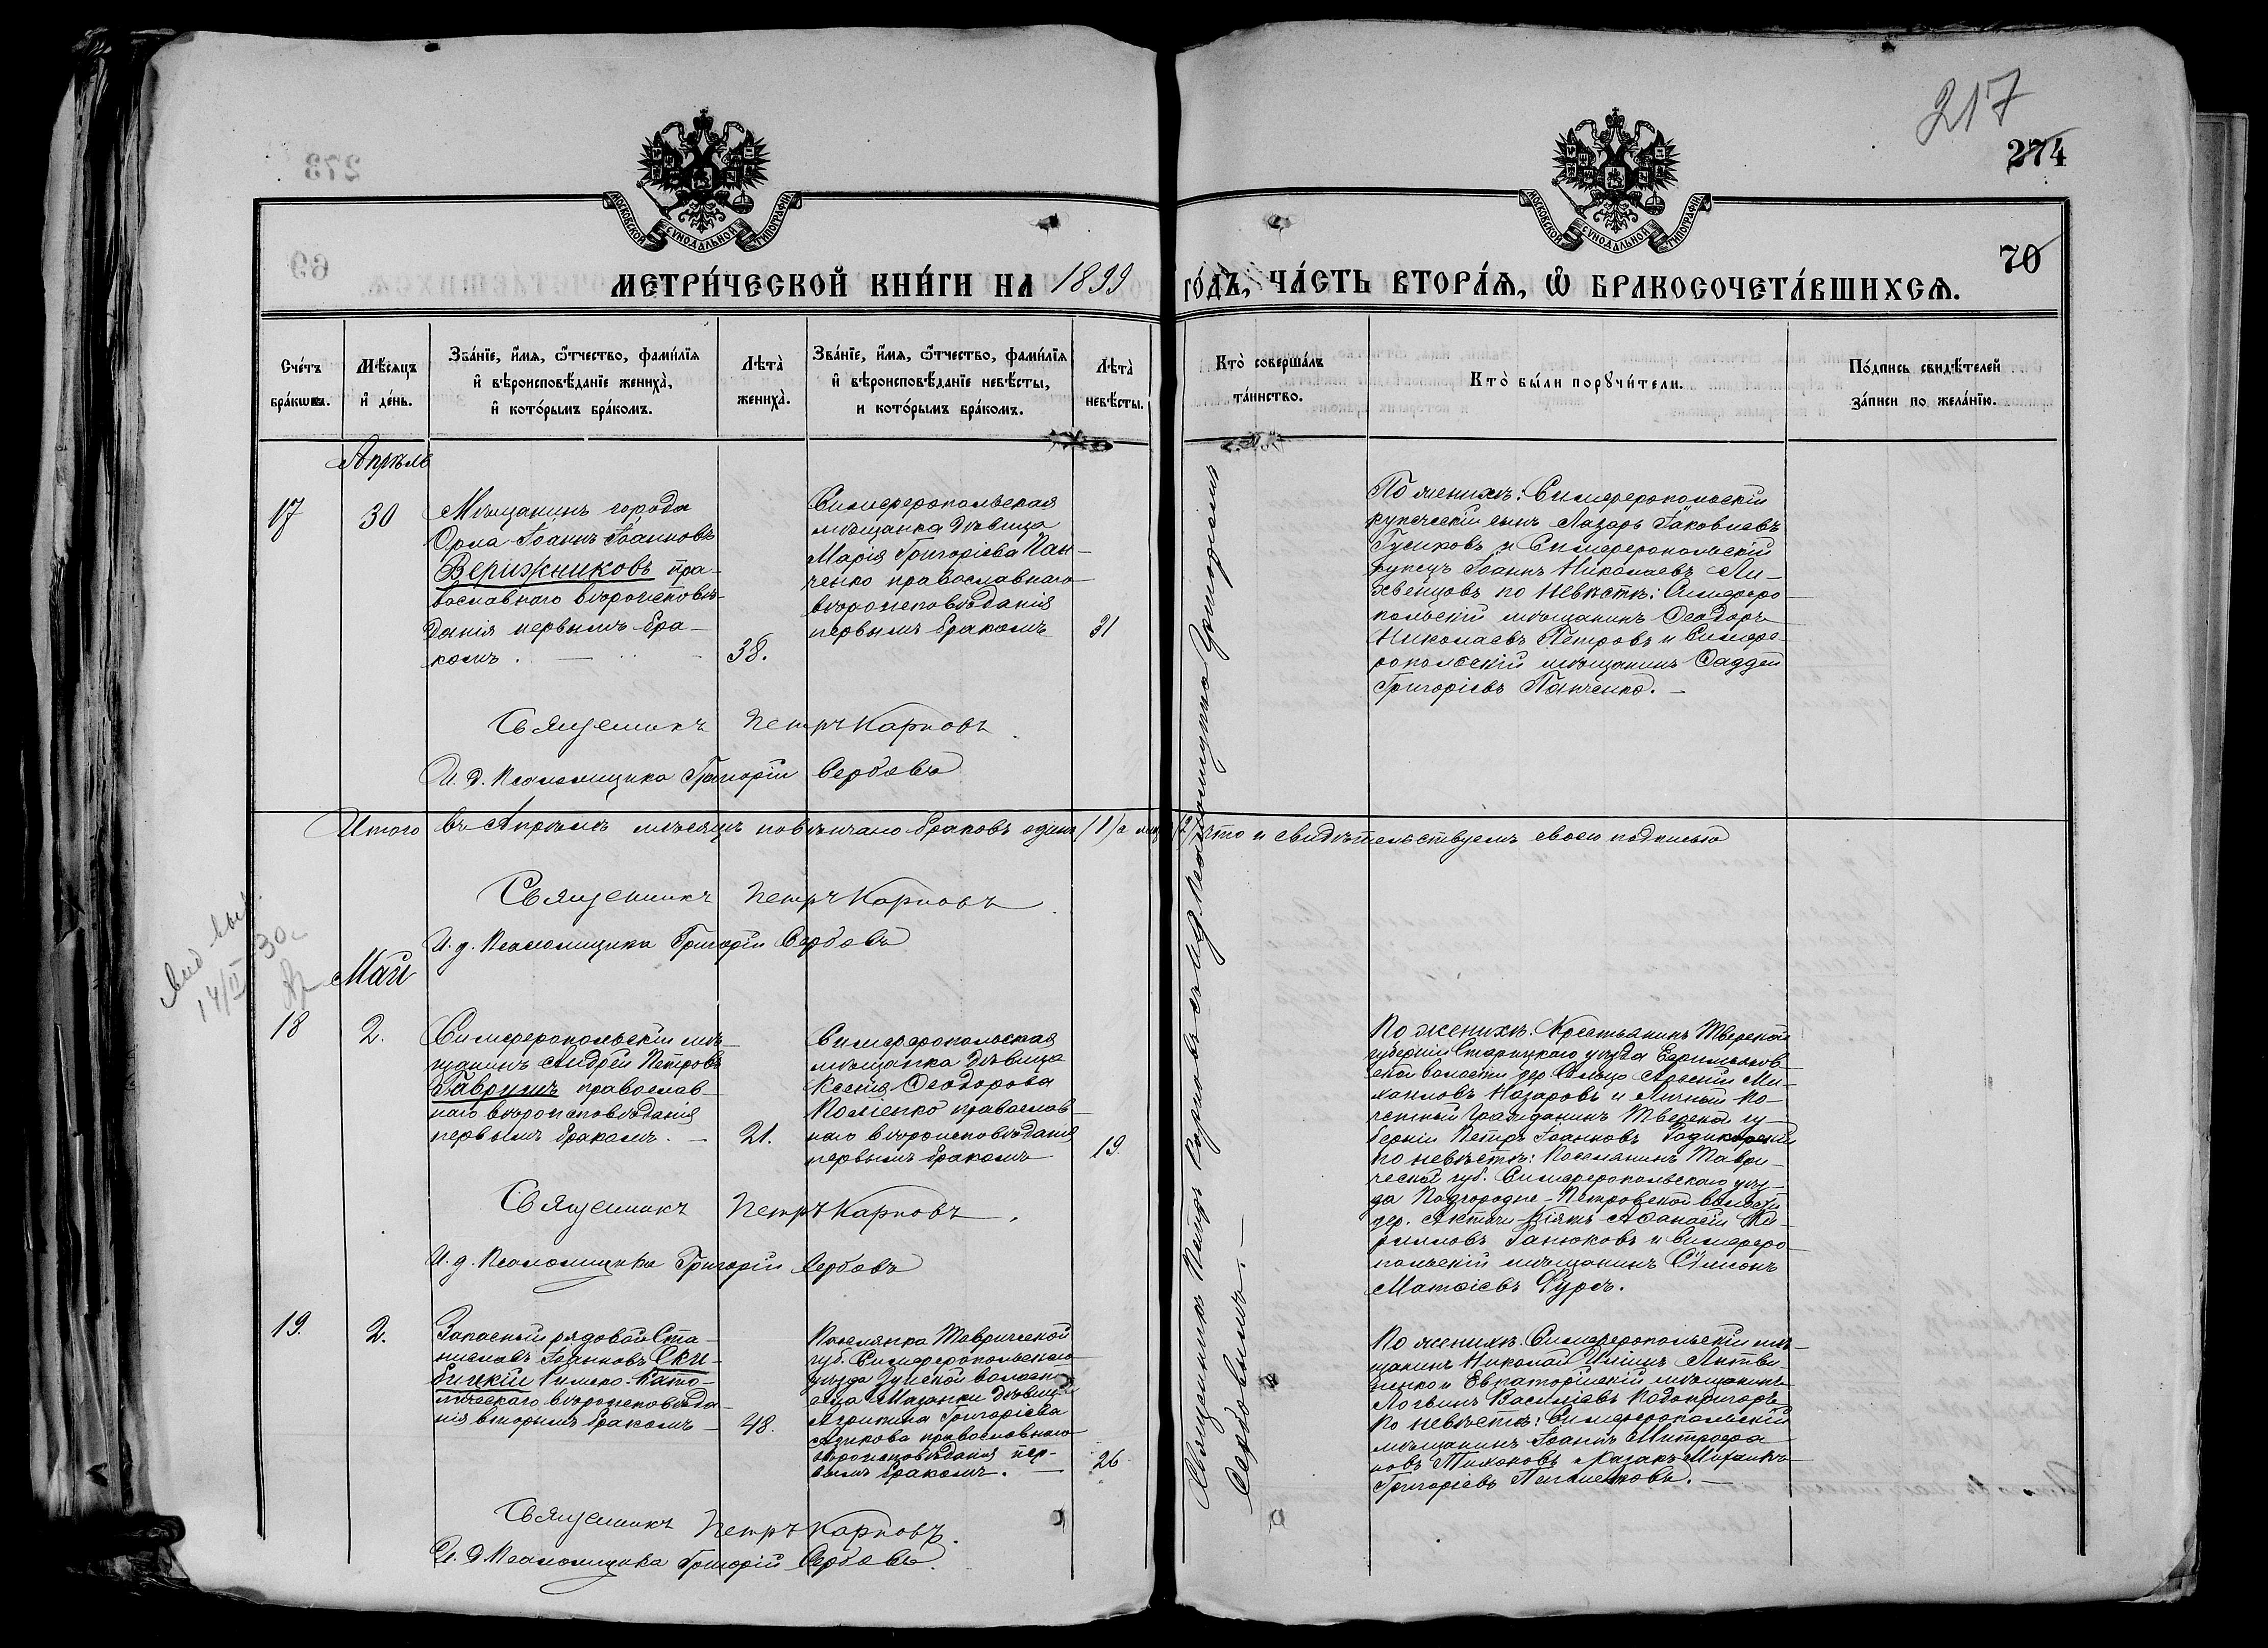 217
274
273
МОСКОВСКОЙ СѴНОДАЛЬНОЙ ТИПОГРАФІИ
МОСКОВСКОЙ СѴНОДАЛЬНОЙ ТИПОГРАФІИ
69
70
МЕТРИ́ЧЕСКОЙ КНИ́ГИ НА 1899 ГО́ДЪ, ЧА́СТЬ ВТОРА́Я, Ѿ БРАКОСОЧЕТА́ВШИХСЯ.
Сче́тъ бра́кѡвъ.
Мѣ́сяцъ и҆ де́нь.
Зва́нїе, и҆́мя, ѻ҆́тчество, фами́лїя
и҆ вѣроисповѣ́данїе жениха̀,
и҆ кото́рымъ бра́комъ.
Лѣта̀ жениха̀.
Зва́нїе, и҆́мя, ѻ҆́тчество, фами́лїя
и҆ вѣроисповѣ́данїе невѣ́сты,
и кото́рымъ бра́комъ.
Лѣта̀ невѣ́сты.
Кто̀ соверша́лъ та́инство.
Кто̀ бы́ли порꙋчи́тели.
По́дпись свидѣ́телей за́писи по жела́нїю.
Апрѣль
17
30
Мѣщанинъ города
Орла Іоаннъ Іоанновъ
Верижниковъ пра-
вославнаго вѣроисповѣ-
данія первымъ бра-
комъ.
38.
Симферопольская
мѣщанка дѣвица
Марія Григоріева Пан-
ченко православнаго
вѣроисповѣданія
первымъ бракомъ
31
По женихѣ: Симферопольскій
купеческій сынъ Лазарь Іаковлевъ
Гусиковъ и Симферопольскій
купецъ Іоаннъ Николаевъ Ли-
хвенцовъ по невѣстѣ: Симферо-
польскій мѣщанинъ Ѳеодоръ
Николаевъ Петровъ и Симфе-
ропольскій мѣщанинъ Ѳаддей
Григоріевъ Панченко. —
Священникъ Петръ Карповъ
И. д. Псаломщика Григорій Сербовъ
Итого въ Апрѣлѣ мѣсяцѣ повѣнчано браковъ одинъ (1) что и свидѣтельствуемъ своею подписью
Священникъ Петръ Карповъ
И. д. Псаломщика Григорій Сербовъ
Май
18
2.
Симферопольскій мѣ-
щанинъ Андрей Петровъ
Гаврушъ православ-
наго вѣроисповѣданія
первымъ бракомъ. —
21.
Симферопольская
мѣщанка дѣвица
Ксенія Ѳеодорова
православ-
наго вѣроисповѣданія
первымъ бракомъ
19.
По женихѣ: Крестьянинъ Тверской
губерніи Старицкаго уѣзда
ской волости дер. Сельцо Арсеній Ми-
хаиловъ Назаровъ и Личный По-
четный Гражданинъ Тверской гу-
берніи Петръ Іоанновъ
по невѣстѣ: Поселянинъ Таври-
ческой губ. Симферопольскаго уѣз-
да Подгородне-Петровской волости
дер. Актачи-Кіятъ Аѳанасій Ки-
рилловъ Ганюковъ и Симферо-
польскій мѣщанинъ Симонъ
Матѳіевъ Фурсъ.
Священникъ Петръ Карповъ.
И. д. Псаломщика Григорій Сербовъ
19.
2.
Запасный рядовой Ста-
ниславъ Іоанновъ Ски-
бицкій Римско-Като-
лическаго вѣроисповѣда-
нія вторымъ бракомъ —
48.
Поселянка Таврической
губ. Симферопольскаго
уѣзда Зуйской волости
села Мазанки дѣвица
Агрипина Григоріева
православнаго
вѣроисповѣданія пер-
вымъ бракомъ. —
26
По женихѣ: Симферопольскій мѣ-
щанинъ Николай Ильинъ Литви-
ненко и Евпаторійскій мѣщанинъ
Логвинъ Василіевъ Подопригора
По невѣстѣ: Симферопольскій
мѣщанинъ Іоаннъ Митрофа-
новъ Тихоновъ и казакъ Михаилъ
Григоріевъ
Священникъ Петръ Карповъ.
И. д. Псаломщика Григорій Сербовъ.
Священникъ Петръ Карповъ съ И. д. Псаломщика Григоріемъ
Сербовымъ. —